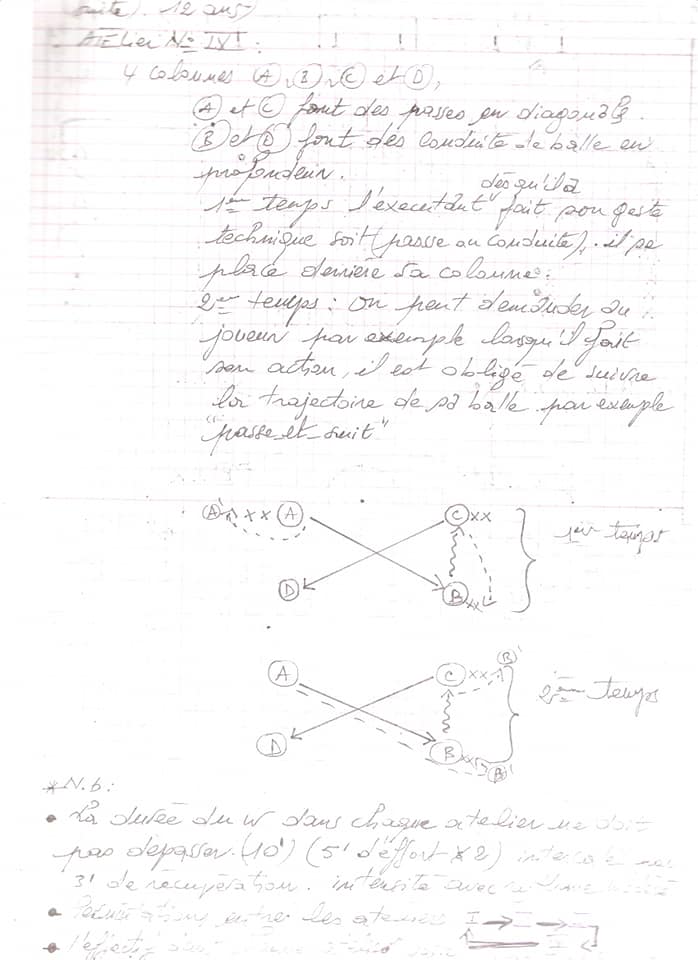 suite). 12 ans)
ATELIER No IV! :
4 colonnes (A), (B), (C) et (D),
(A) et (C) font des passes en diagonale.
(B) et (D) font des conduite de balle en
profondeur.
dès qu'il a
1er temps l'executant " fait son geste
technique soit (passe ou conduite), il se
place derrière sa colonne.
2eme temps : On peut demander au
joueur par exemple lorsqu'il fait
son action, il est obligé de suivre
la trajectoire de sa balle par exemple
"passe et suit"
A' xx A C xx
1er temps
D B xx
A C xx B'
2eme temps
D B xx B'
* N.b :
• La durée du W dans chaque atelier ne doit
pas dépasser (10') (5' d'effort x 2)
3' de récupération. intensité avec
• Permutations entre les ateliers I → I → I
• L'effectif